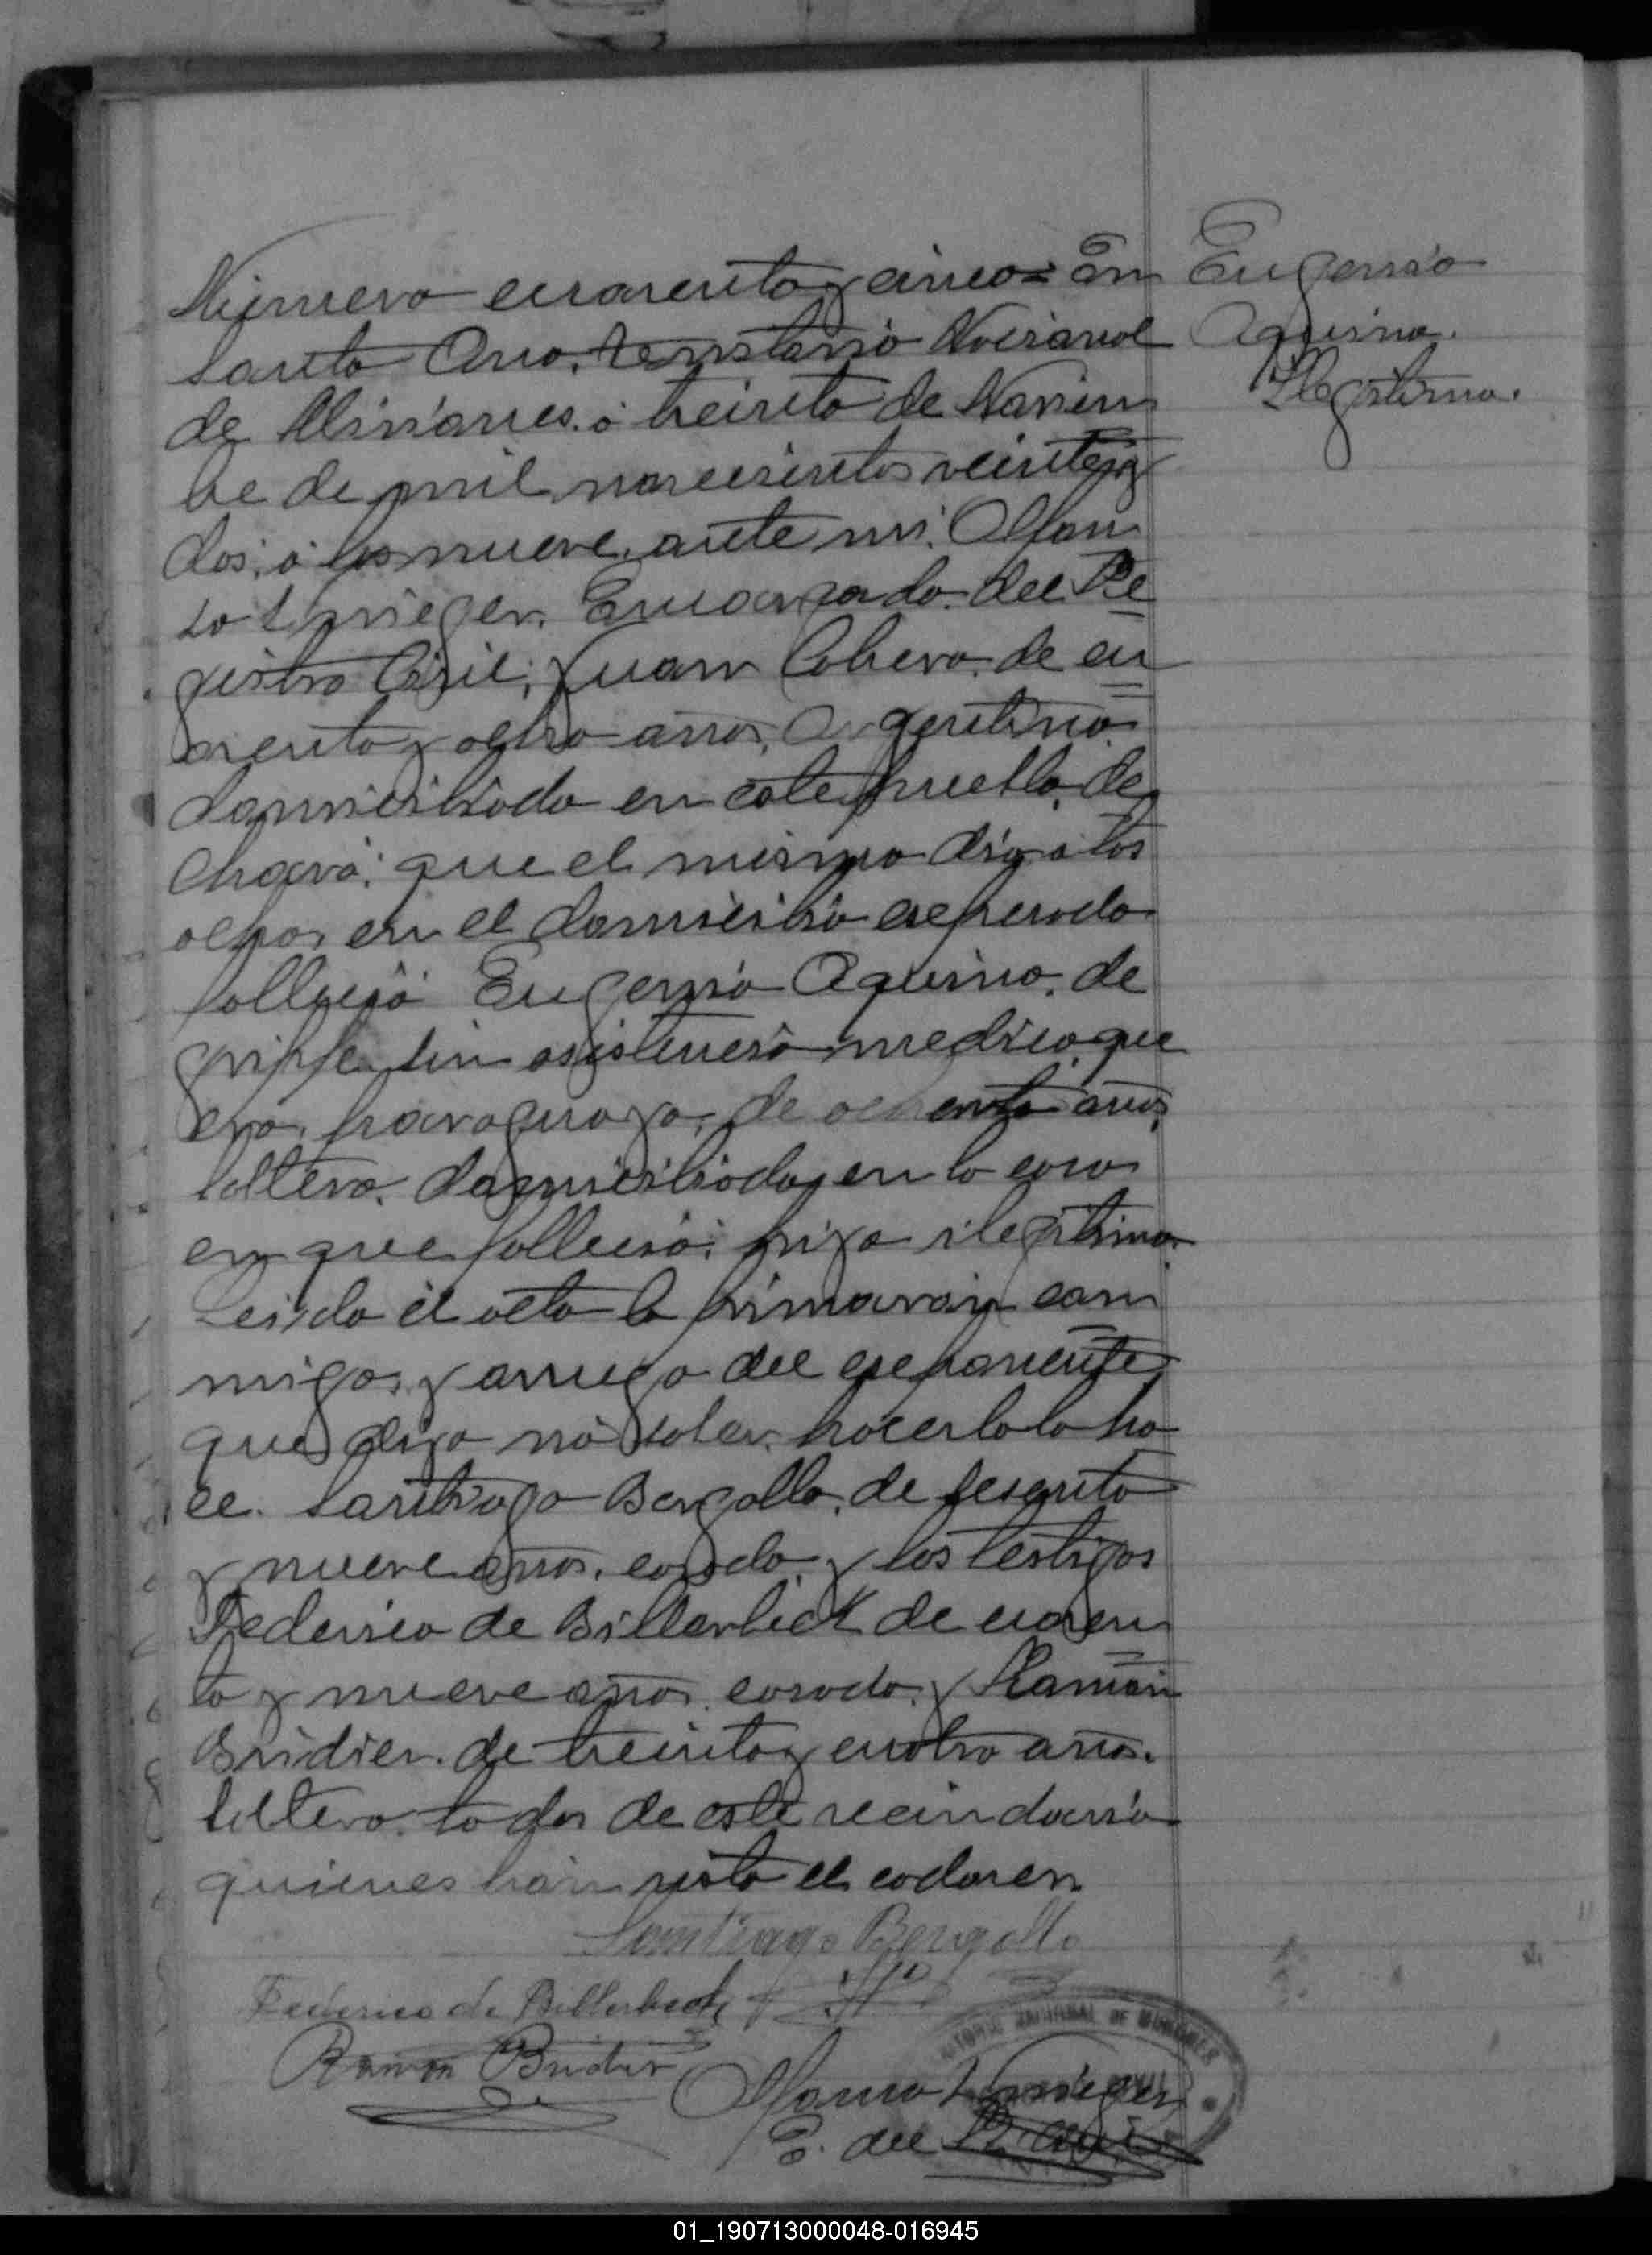 Número cuarenta y cinco = En
Santa Ana, territorio Nacional
de Misiones, á treinta de Noviem
bre de mil novecientos veinte y
dos, á las nueve, ante mi, Alfon
so Encargado del Re
gistro Civil; Juan Cabrera de cu
arenta y ocho años, Argentino
domiciliado en este pueblo, de
claró: que el mismo dia a las
ocho, en el domicilio espresado
fallecio Eugenia Aquino, de
gripe, sin asistencia medica, que
era, paraguaya, de ochenta años,
soltera, domiciliada en la casa
en que fallecio; hija ilegitima.
Leida el acta la firmaron con
migo, y a ruego del esponente
que dijo no saber hacerlo lo ha
ce Santiago Bergallo, de sesenta
y nueve años, casado, y los testigos
Federico de Billerbeck de cuaren
ta y nueve años, casado, y Ramón
Bridier, de treinta y cuatro años,
soltero, todos de este vecindario
quienes han visto el cadaver.
Santiago Bergallo
Federico de Billerbeck
Ramon Bridier
Alfonso
E. del R. Civil
Eugenia
Aquino.
Ilegitima.
TERRITORIO NACIONAL DE MISIONES
01_190713000048-016945